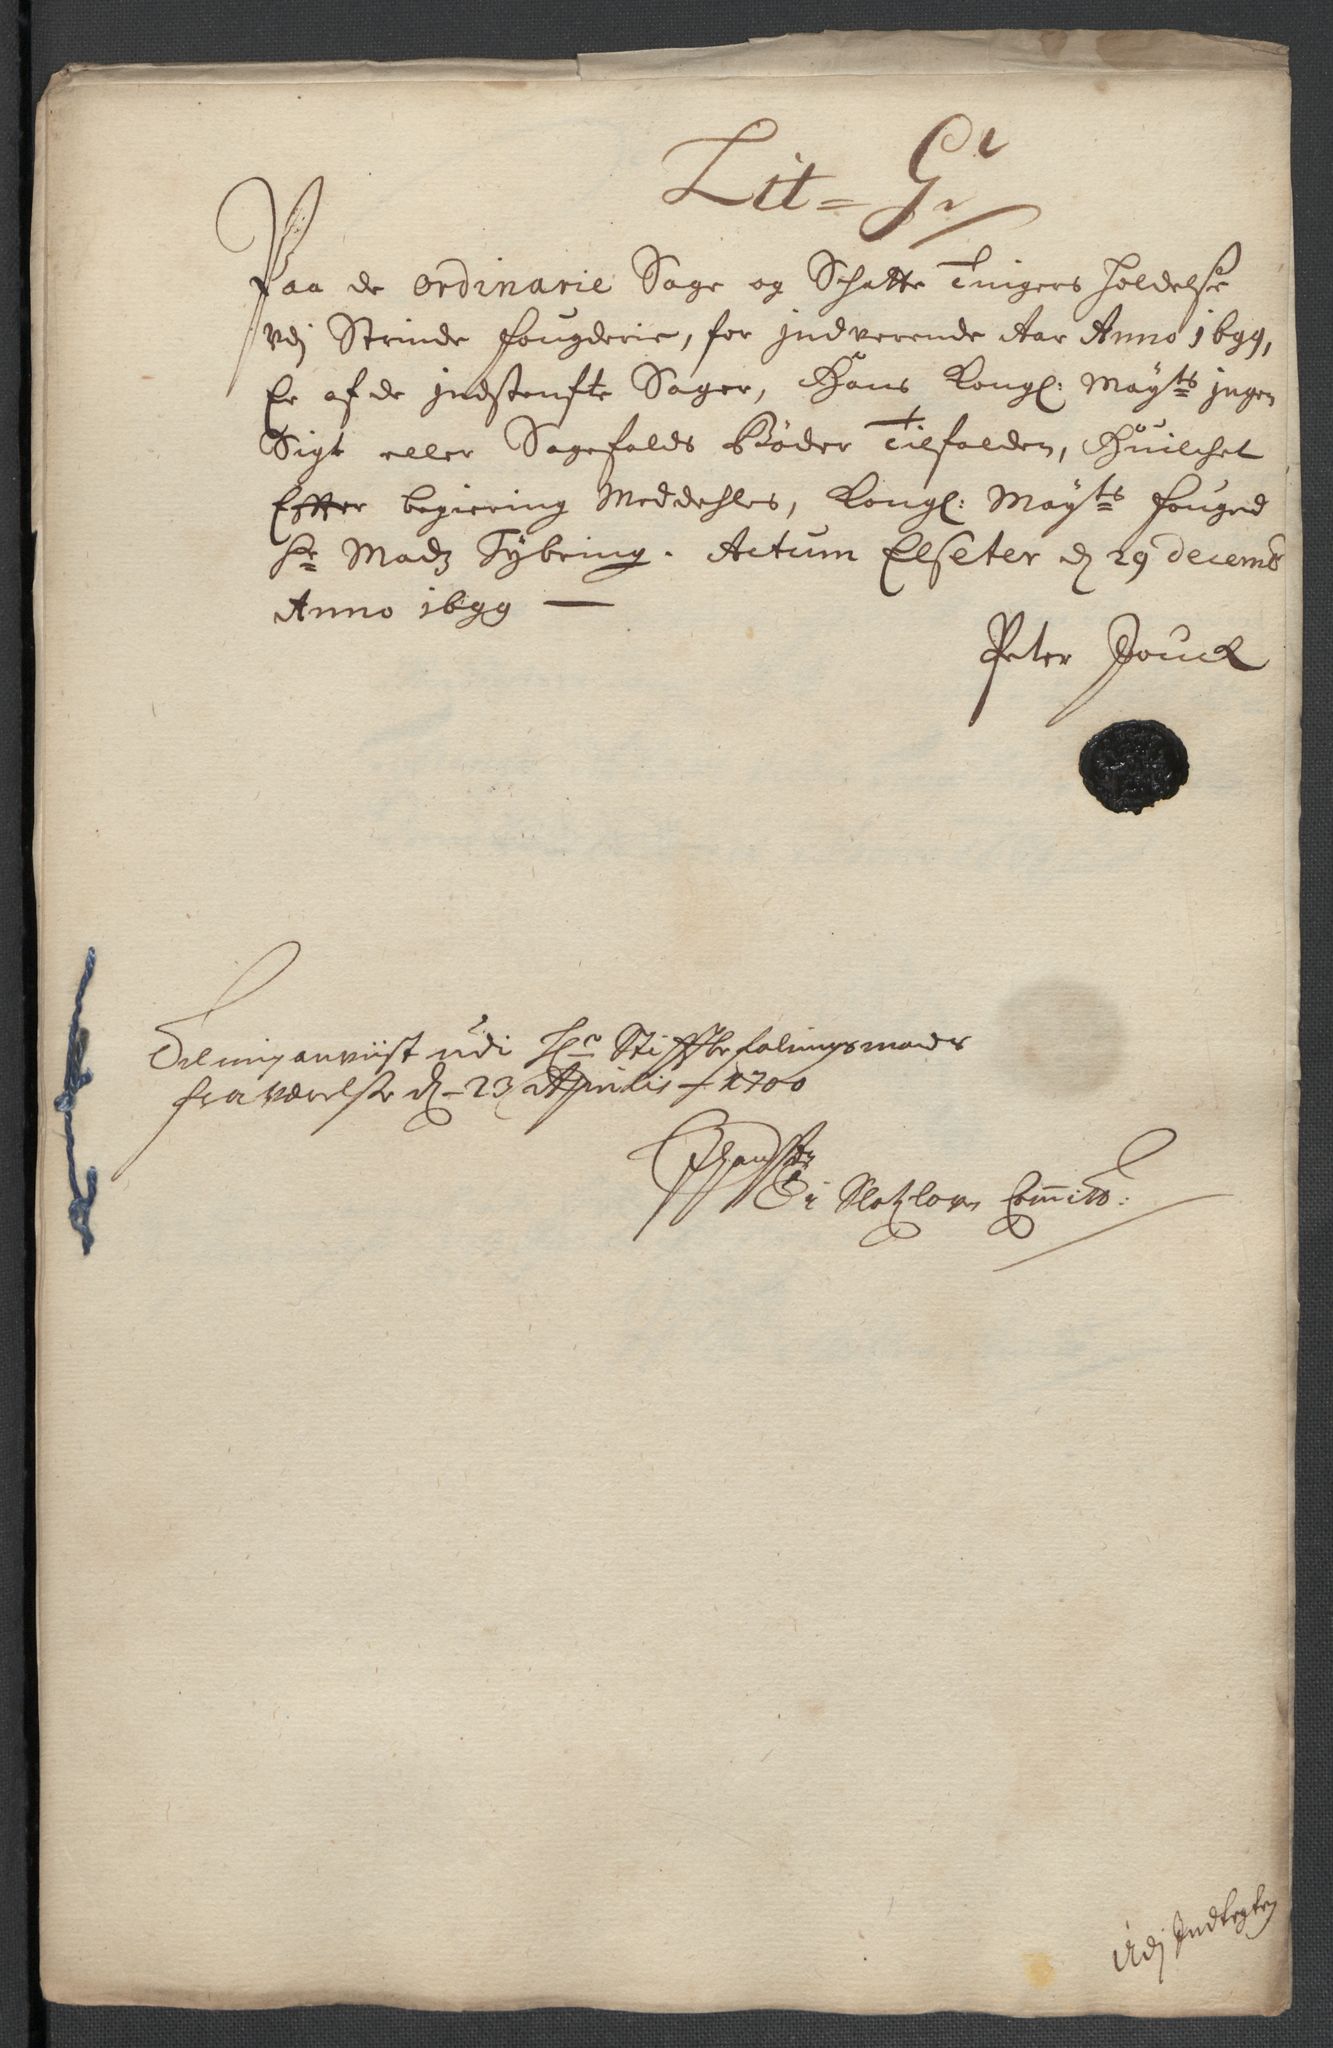 Lit = G
Paa de ordinarie Sage og Schatte Tingers holdelse
vdj Strinde fougderie, for jndverende Aar Anno 1699,
Er af de jndstenfte Sager, Hans Kongl: Mayts jngen
Sigt eller Sagefalds Bøder Tilfalden, Huilchet
Effter begiering Meddehles, Kongl: Mayts fouged
Sr Madz Tybring. Actum Elseter d 29 decemb
Anno 1699
Peter Jouck
Til mig anviist udi Hr Stiftbefalingsmands
fraværelse d 23 Aprilis 1700
Slotzlovs Committ:
Udj Indtegten